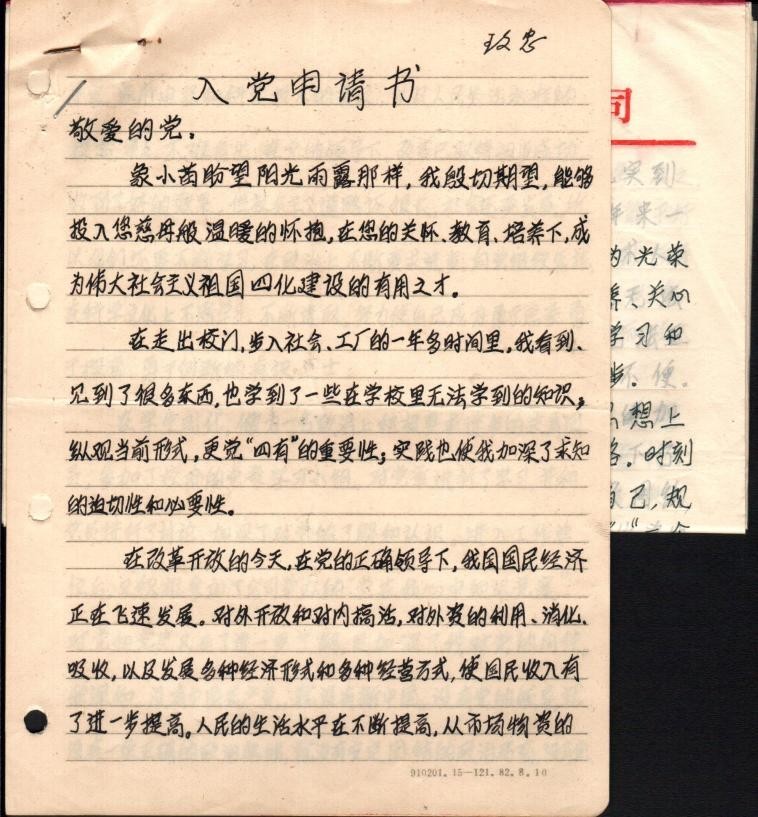 玫忠
入党申请书
敬爱的党.
象小苗盼望阳光雨露那样,我殷切期望,能够
投入您慈母般温暖的怀抱,在您的关怀、教育、培养下,成
为伟大社会主义祖国四化建设的有用之才。
在走出校门,步入社会、工厂的一年多时间里,我看到、
见到了很多东西,也学到了一些在学校里无法学到的知识;
纵观当前形式,更觉“四有”的重要性;实践也使我加深了求知
的迫切性和必要性。
在改革开放的今天,在党的正确领导下,我国国民经济
正在飞速发展。对外开放和对内搞活,对外资的利用、消化、
吸收,以及发展多种经济形式和多种经营方式,使国民收入有
了进一步提高。人民的生活水平在不断提高,从市场物资的
910201.15—121.82.8.10
司
实到
年来一
为光荣
养、关心
学习和
步.
不便.
思想上
各.时刻
自己,规